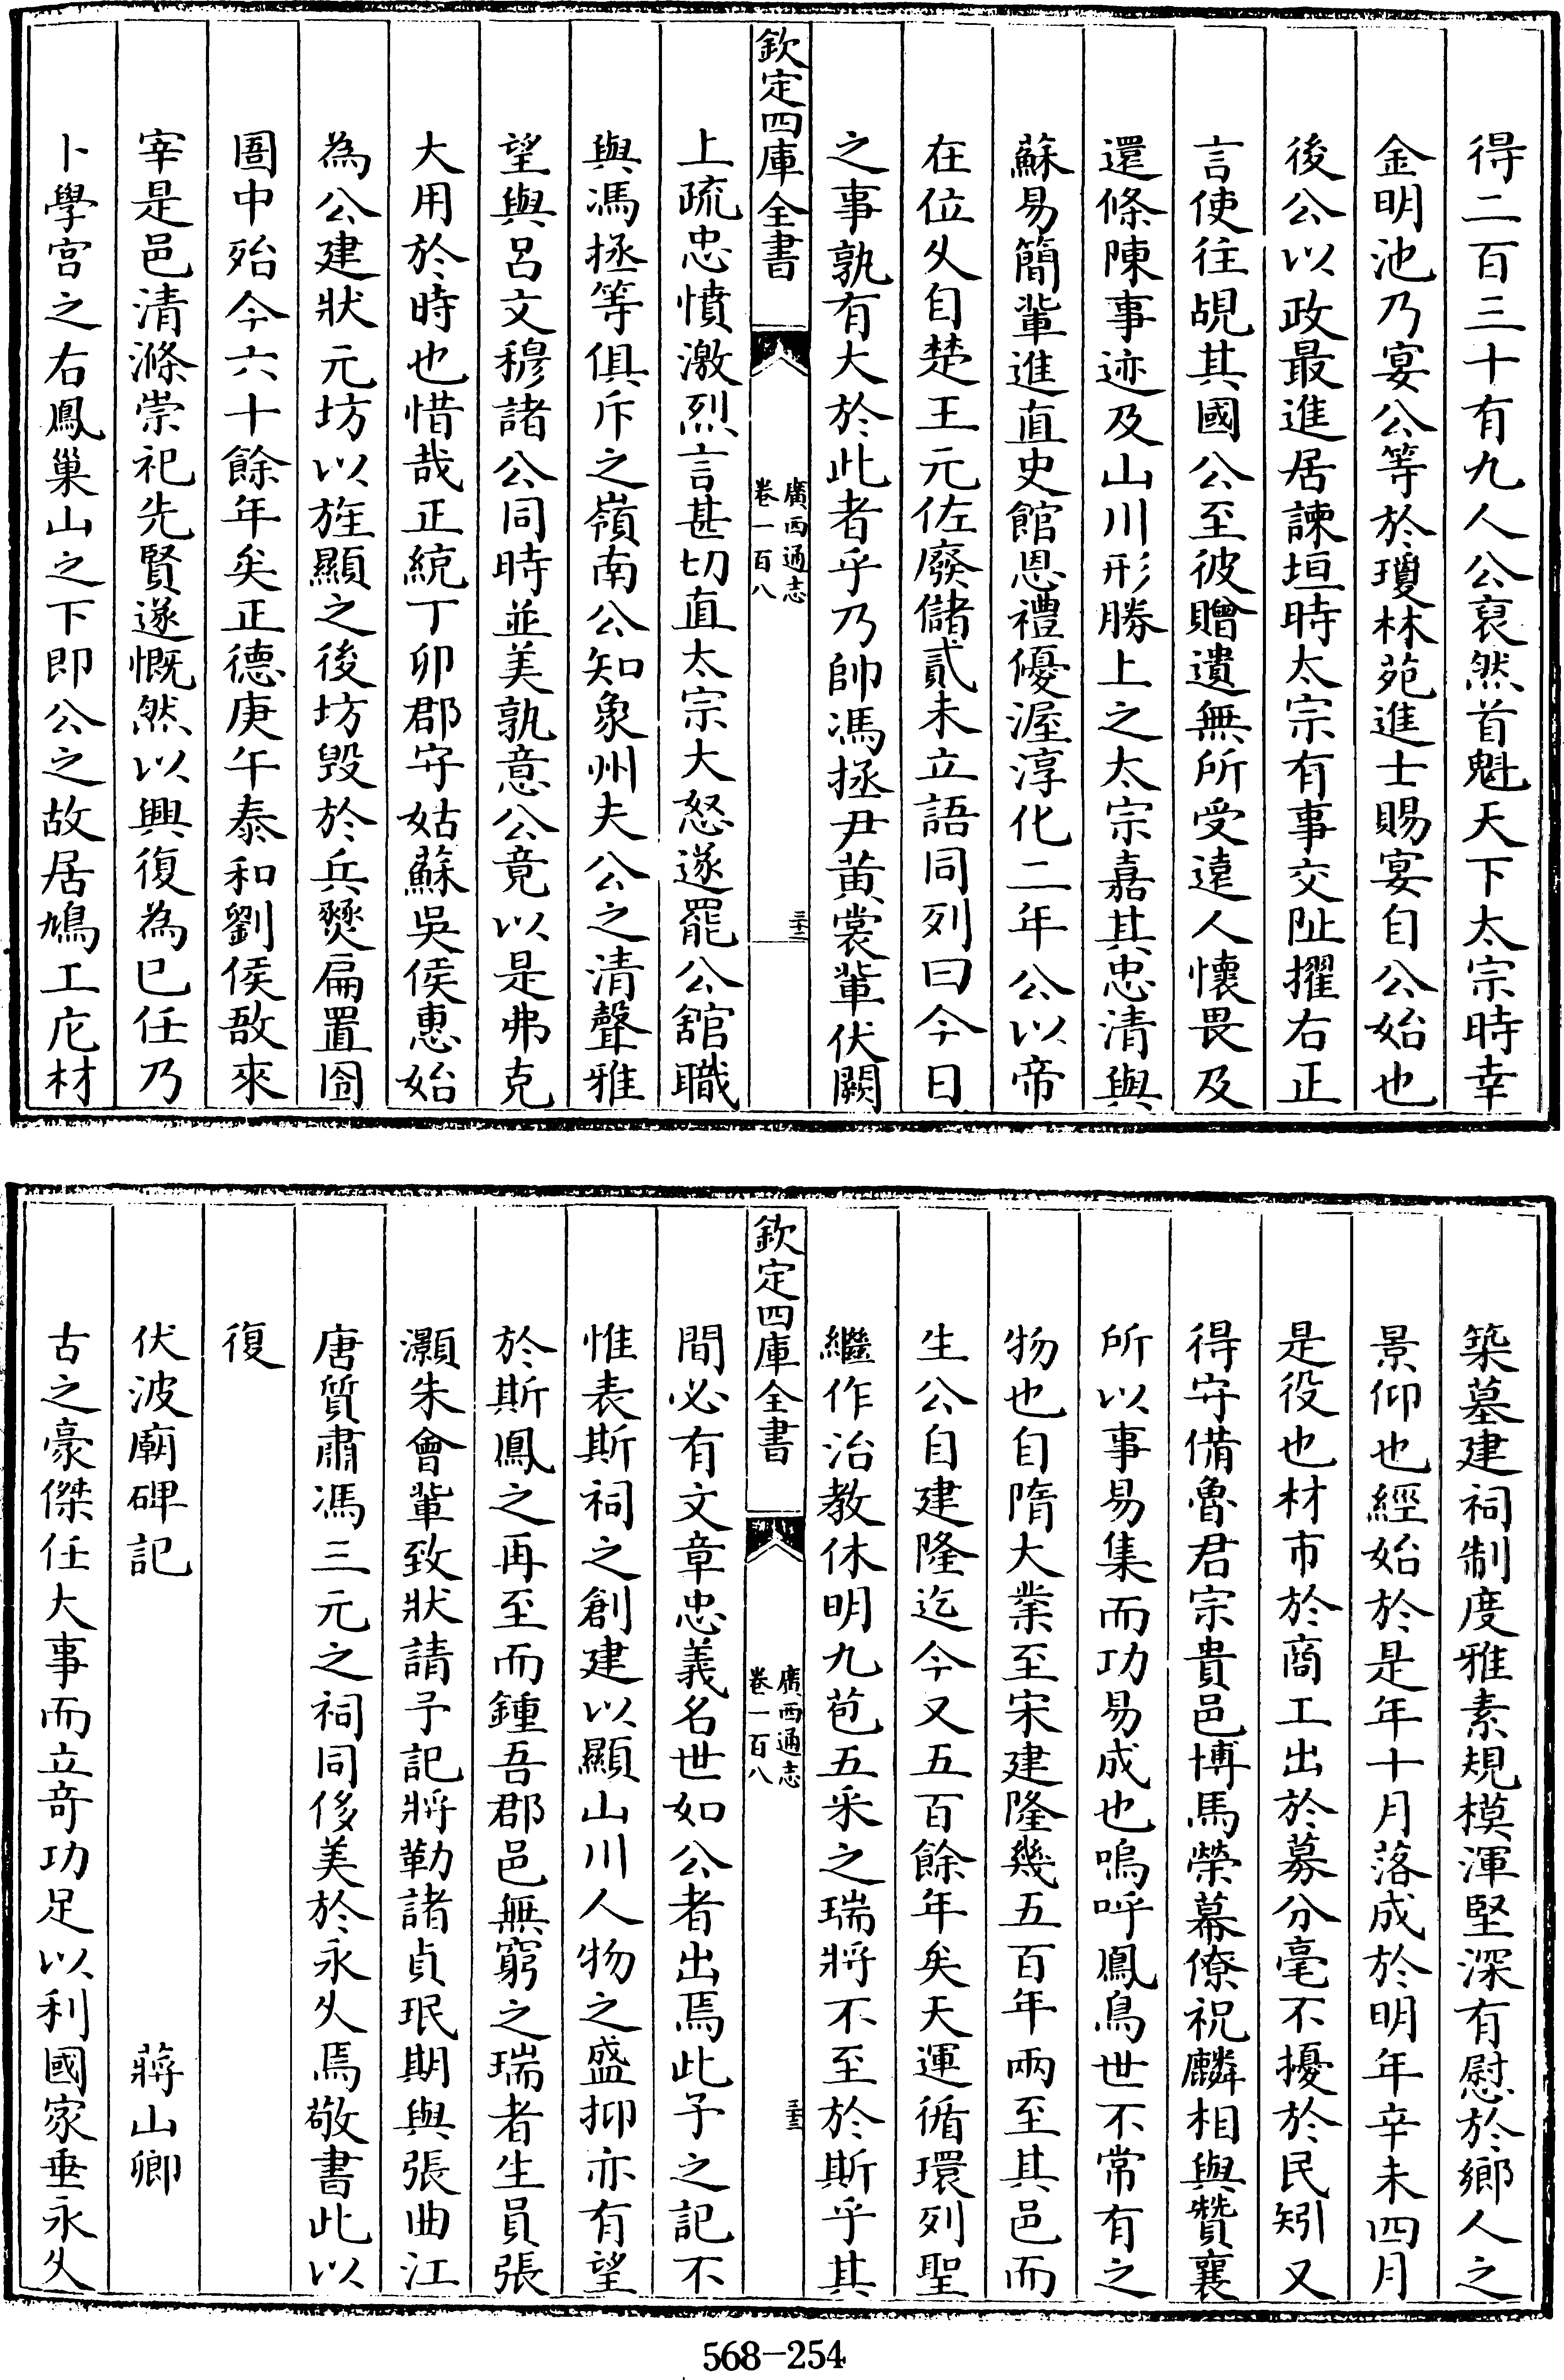 得二百三十有九人公裒然首魁天下太宗時幸
金明池乃宴公等於瓊林苑進士賜宴自公始也
後公以政最進居諫垣時太宗有事交阯擢右正
言使往覘其國公至彼贈遺無所受遠人懷畏及
還條陳事迹及山川形勝上之太宗嘉其忠清與
蘇易簡輩進直史館恩禮優渥淳化二年公以帝
在位久自楚王元佐廢儲貳未立語同列曰今日
之事孰有大於此者乎乃帥馮拯尹黃裳輩伏闕
欽定四庫全書
廣西通志
卷一百八
三十二
上疏忠憤激烈言甚切直太宗大怒遂罷公舘職
與馮拯等俱斥之嶺南公知象州夫公之清聲雅
望與呂文穆諸公同時並美孰意公竟以是弗克
大用於時也惜哉正統丁卯郡守姑蘇吳侯惠始
為公建狀元坊以旌顯之後坊毀於兵燹扁置囹
圄中殆今六十餘年矣正德庚午泰和劉侯敔來
宰是邑清滌崇祀先賢遂慨然以興復為已任乃
卜學宮之右鳳巢山之下即公之故居鳩工庀材
築墓建祠制度雅素規模渾堅深有慰於鄉人之
景仰也經始於是年十月落成於明年辛未四月
是役也材市於商工出於募分毫不擾於民矧又
得守備魯君宗貴邑博馬榮幕僚祝麟相與贊襄
所以事易集而功易成也嗚呼鳳鳥世不常有之
物也自隋大業至宋建隆幾五百年兩至其邑而
生公自建隆迄今又五百餘年矣天運循環列聖
繼作治教休明九苞五采之瑞將不至於斯乎其
欽定四庫全書
廣西通志
卷一百八
三十三
間必有文章忠義名世如公者出焉此予之記不
惟表斯祠之創建以顯山川人物之盛抑亦有望
於斯鳳之再至而鍾吾郡邑無窮之瑞者生員張
灝朱會輩致狀請予記將勒諸貞珉期與張曲江
唐質肅馮三元之祠同侈美於永久焉敬書此以
復
伏波廟碑記 蔣山卿
古之豪傑任大事而立奇功足以利國家垂永久
568-254